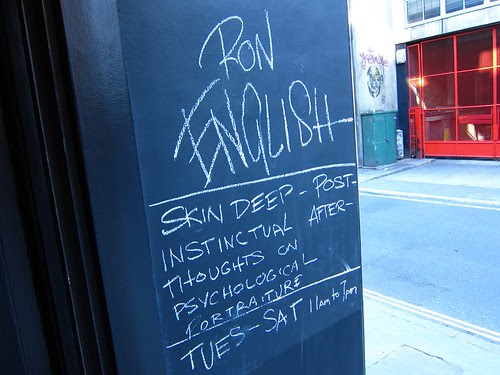 RON
ENGLISH
SKIN DEEP - POST-
INSTINCTUAL AFTER-
THOUGHTS ON
PSYCHOLOGICAL
PORTRAITURE
TUES - SAT 11am to 7pm